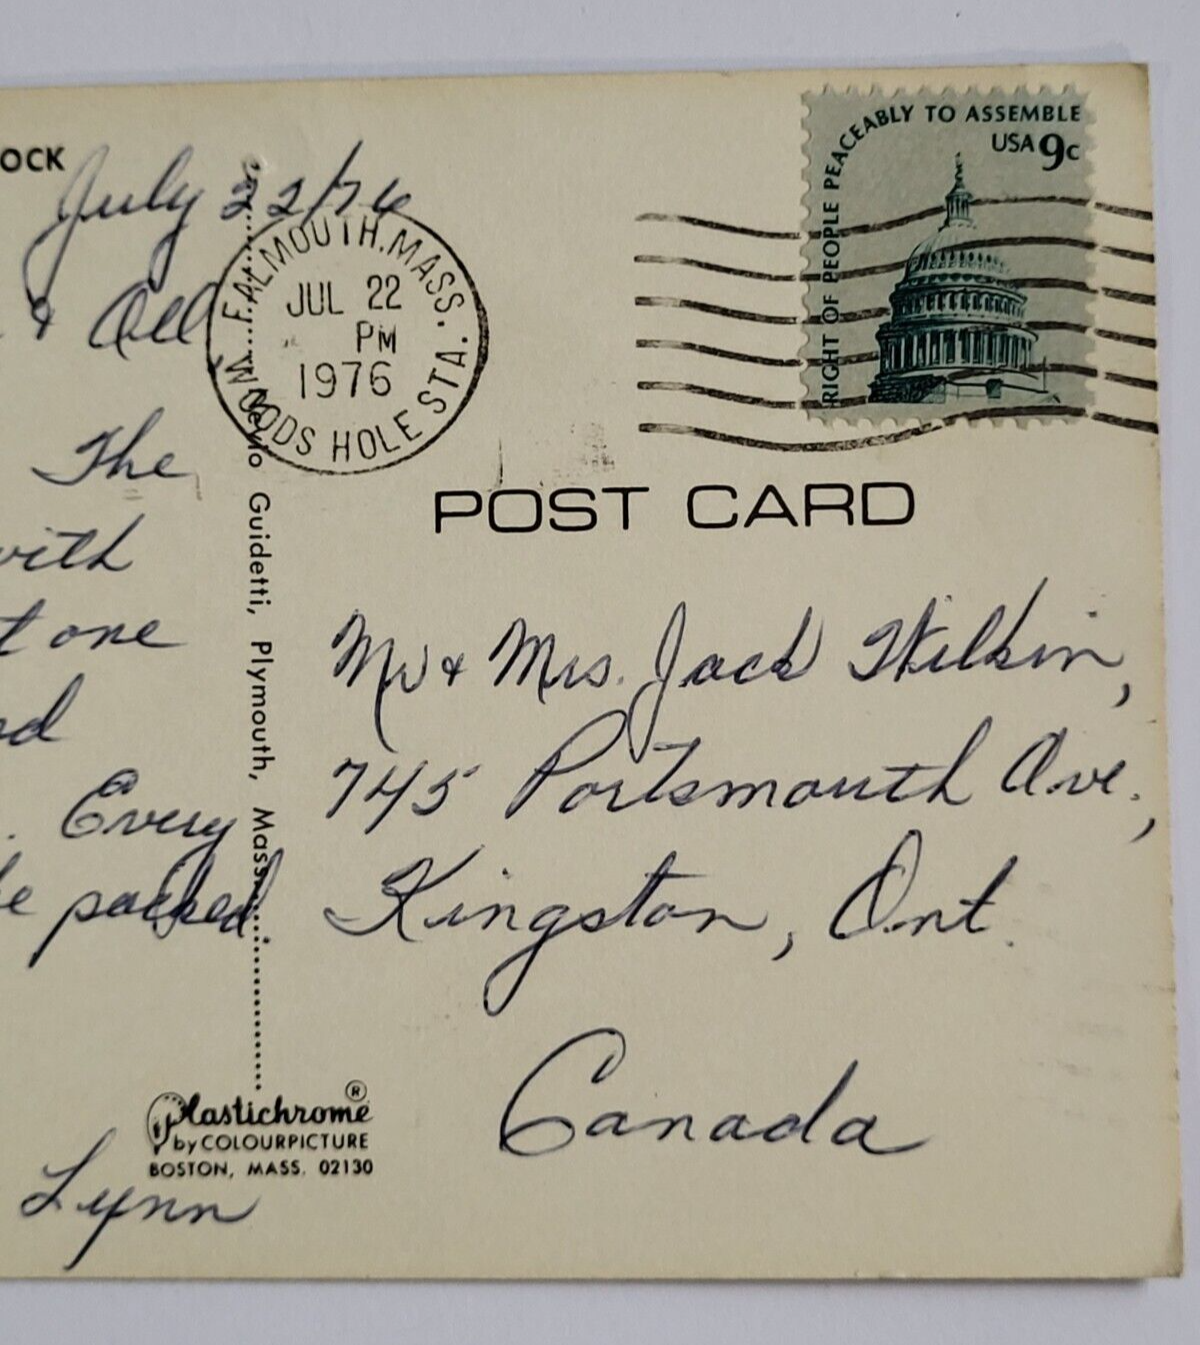 OCK
July 22/76
& All
The
with
t one
Every
be packed.
Lynn
FALMOUTH, MASS.
JUL 22
PM
1976
WOODS HOLE STA.
RIGHT OF PEOPLE PEACEABLY TO ASSEMBLE
USA 9c
Guidetti, Plymouth, Mass.
POST CARD
Mr & Mrs. Jack Wilkin,
745 Portsmouth Ave.,
Kingston, Ont.
Canada
Plastichrome ®
by COLOURPICTURE
BOSTON, MASS. 02130